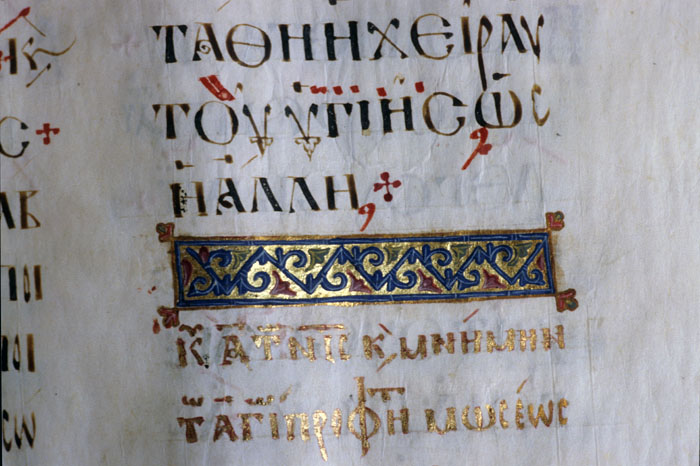 ΤΑΘΗ Η ΧΕΙΡ ΑΥ
ΤΟΥ ΥΓΙΗϹ ΩϹ
Η ΑΛΛΗ
Κ Α Τ ΝΗϹ Κ ΜΝΗΜΗ
Τ ΑΓΙ ΠΡΦΗ ΜωϹΕωϹ